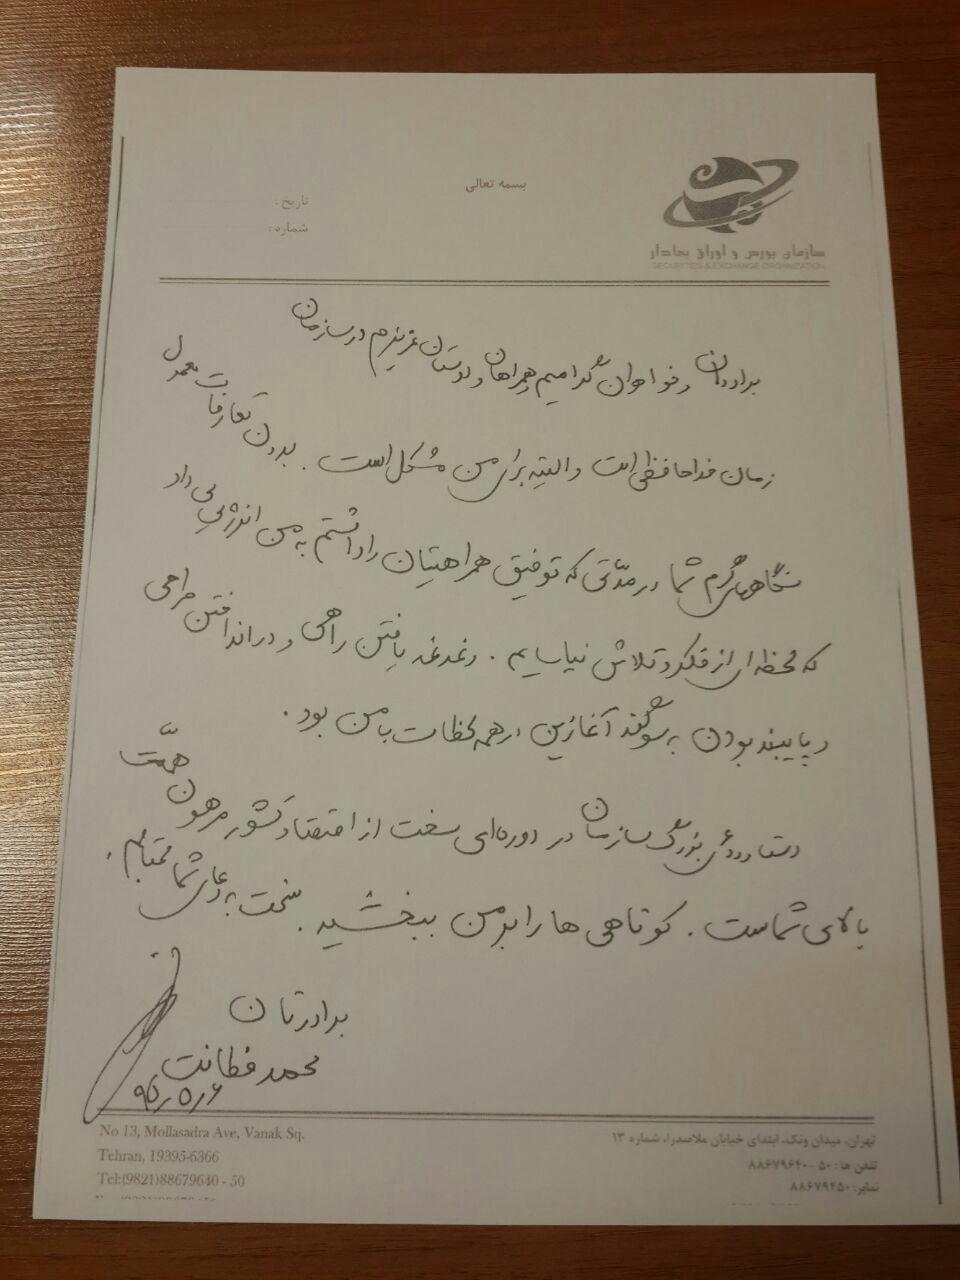 بسمه تعالی
تاریخ :
شماره :
سازمان بورس و اوراق بهادار
SECURITIES & EXCHANGE ORGANIZATION
برادران و خواهران گرامیم و همراهان و دوستان عزیزم در سازمان
زمان خداحافظی است و البته برای من مشکل است . بدون تعارفات معمول
نگاههای گرم شما در مدّتی که توفیق همراهیتان را داشتم به من انرژیی می داد
که لحظه ای از فکر و تلاش نیاسایم . دغدغه یافتن راهی و در انداختن طرحی
و پایبند بودن به سوگند آغازین در همه لحظات با من بود .
دستاوردهای بزرگ سازمان در دوره‌ای سخت از اقتصاد کشور مرهون همّت
بالای شماست . کوتاهی ها را بر من ببخشید . سخت به دعای شما محتاجم .
برادرتان
محمد فطانت
۹۵/۵/۶
No 13, Mollasadra Ave, Vanak Sq.
Tehran, 19395-6366
Tel:(9821)88679640 - 50
تهران، میدان ونک، ابتدای خیابان ملاصدرا، شماره ۱۳
تلفن ها : ۵۰ - ۸۸۶۷۹۶۴۰
نمابر: ۸۸۶۷۹۴۵۰